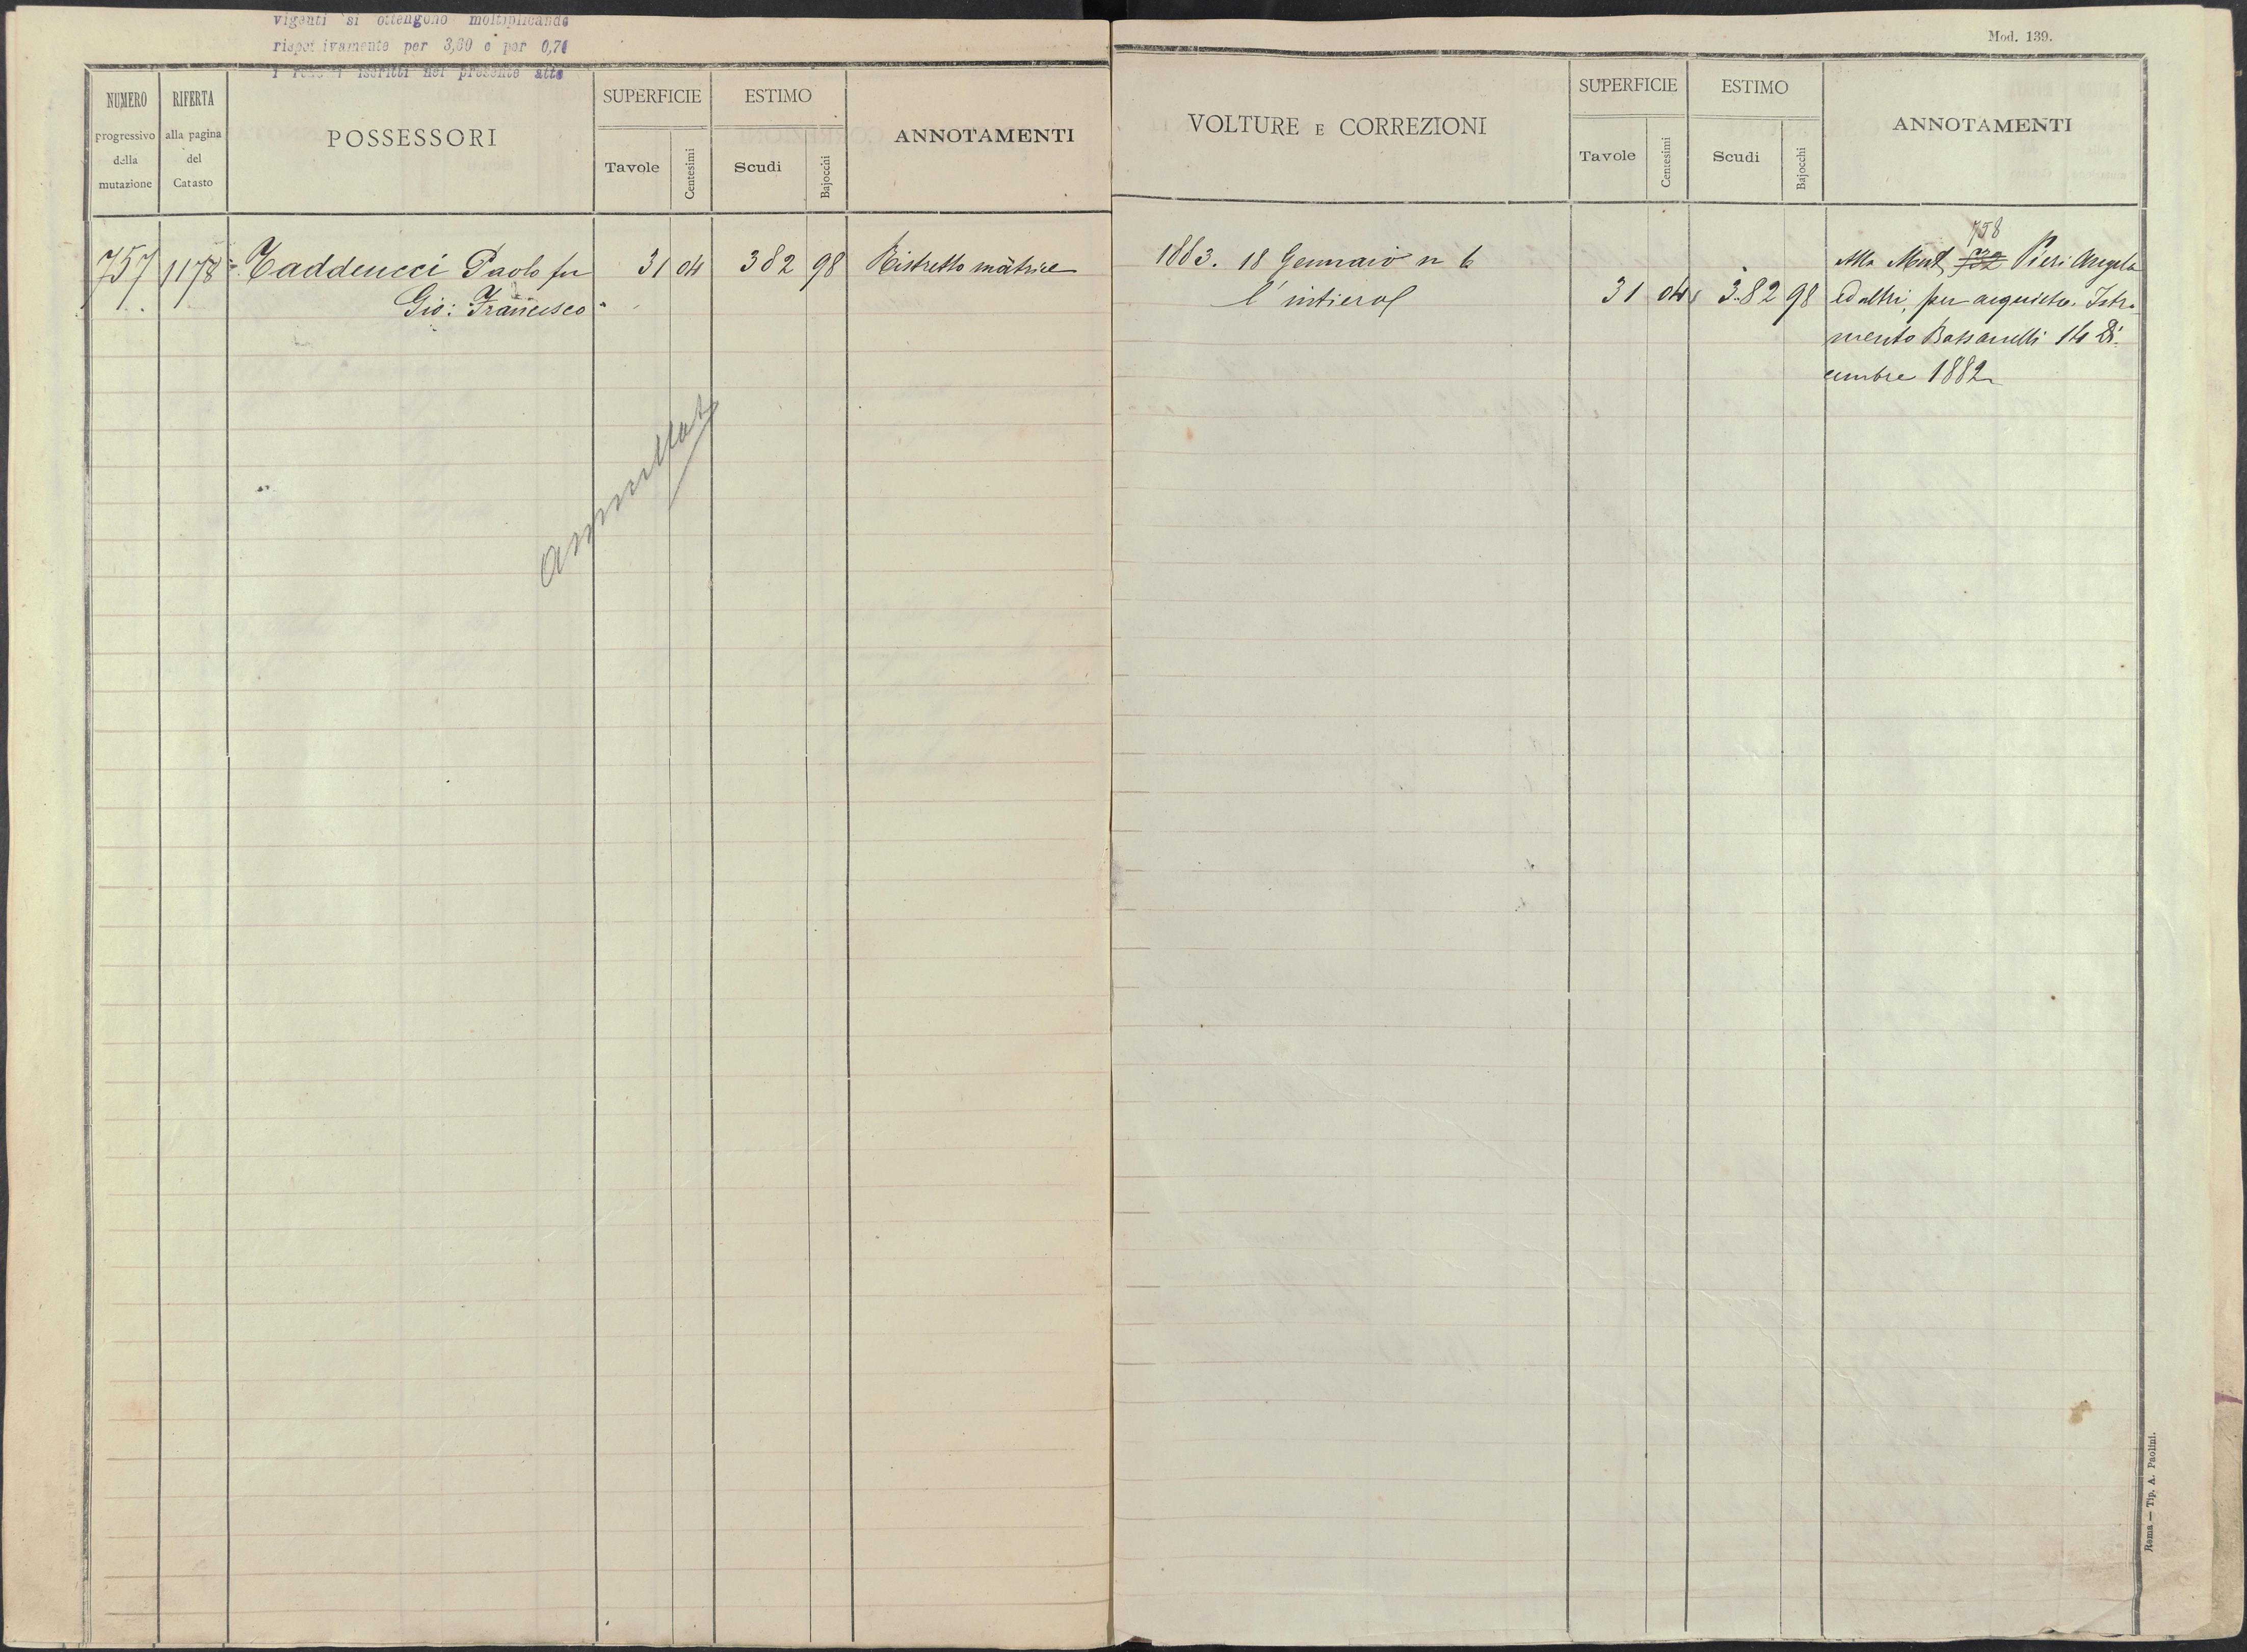 viganti si ottengono moltiplicando
rispettivamente per 3,60 e per 0,71
iscritti nel presente atto
NUMERO
progressivo
della
mutazione
RIFERTA
alla pagina
del
Catasto
POSSESSORI
SUPERFICIE
Tavole
Centesimi
ESTIMO
Scudi
Bajocchi
ANNOTAMENTI
757 1178 Taddeucci Paolo fu 31 04 382 98 Ristretto matrice
Gio: Francesco
annullata
Mod. 139.
VOLTURE E CORREZIONI
SUPERFICIE
Tavole
Centesimi
ESTIMO
Scudi
Bajocchi
ANNOTAMENTI
758
1883. 18 Gennaio n 6 Alla Mut Pieri Angela
l'intiero 31 04 382 98 ed altri, per acquisto. Istro
mento Bassanelli 14 Di
cembre 1882
Roma — Tip. A. Paolini.